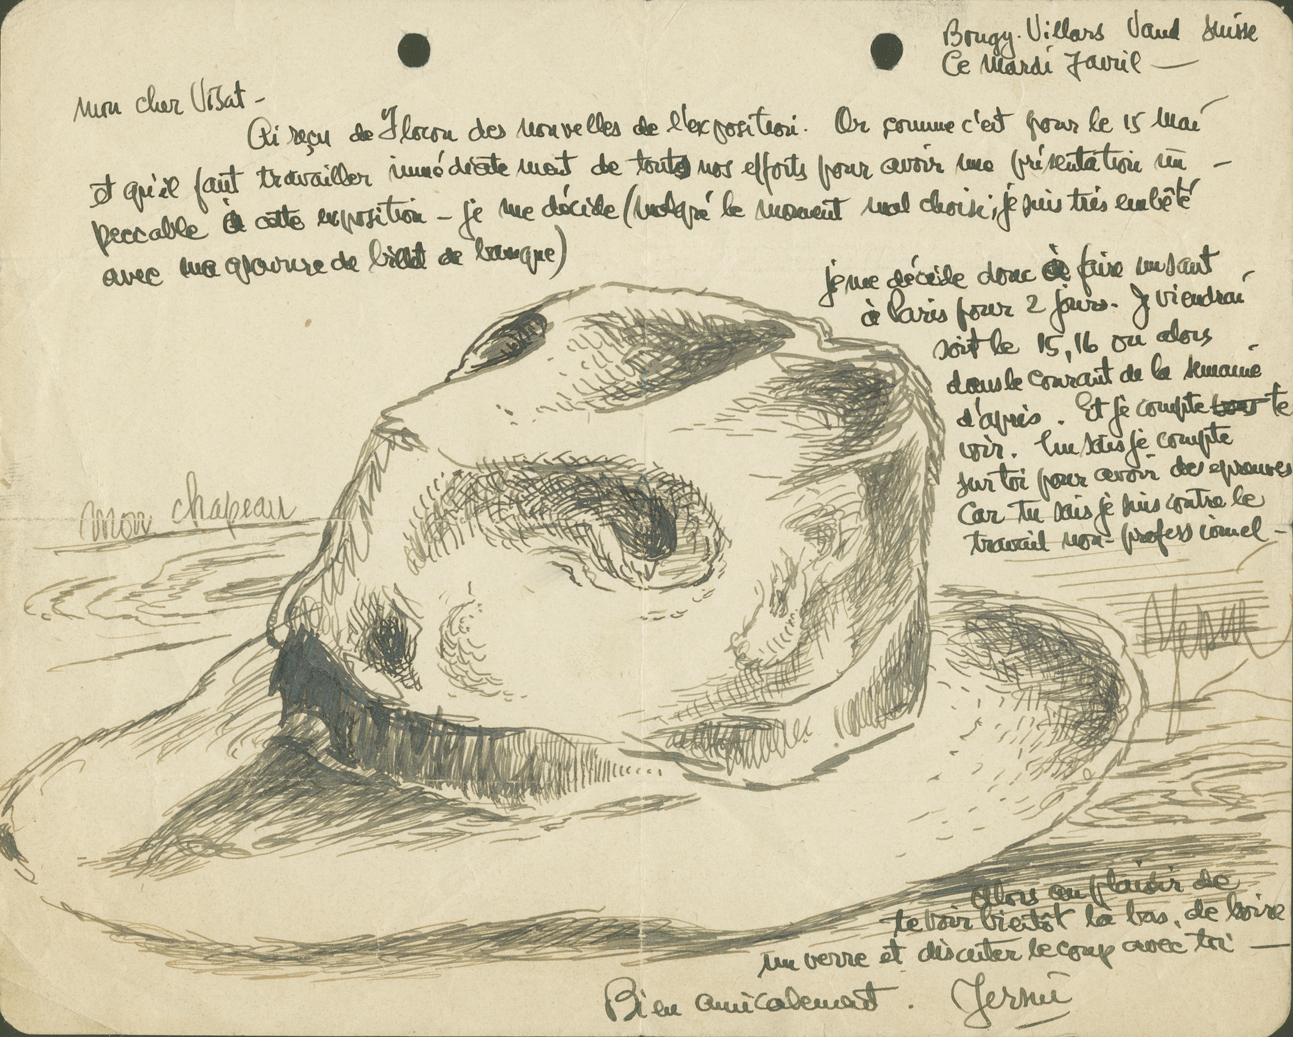 Bougy-Villars Vaud Suisse
Ce Mardi 7 avril —
mon cher Visat -
Ai reçu de Flocon des nouvelles de l'exposition. Or comme c'est pour le 15 Mai
et qu'il faut travailler immédiatement de touts nos efforts pour avoir une présentation im-
peccable à cette exposition - je me décide (malgré le moment mal choisi, je suis très embêté
avec ma gravure de billet de banque)
je me décide donc à faire un saut
à Paris pour 2 jours. Je viendrai
soit le 15, 16 ou alors
dans le courant de la semaine
d'après. Et je compte te
voir. Tu sais je compte
sur toi pour avoir des epreuves
Car tu sais je suis contre le
travail non-professionnel -
mon chapeau
Alors au plaisir de
te voir bientôt là bas, de boire
un verre et discuter le coup avec toi —
Bien amicalement. Yersin